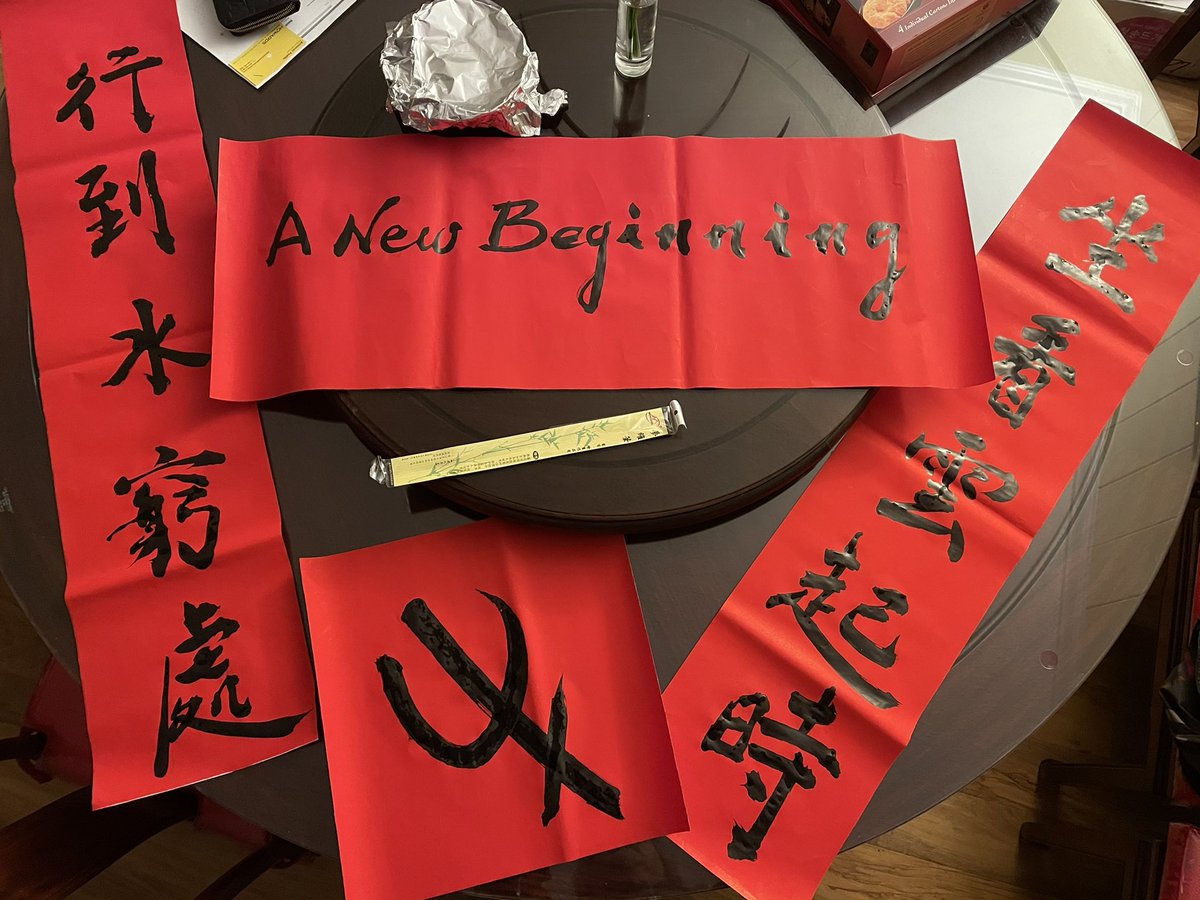 行到水窮處
A New Beginning
坐看雲起時
4 Individual